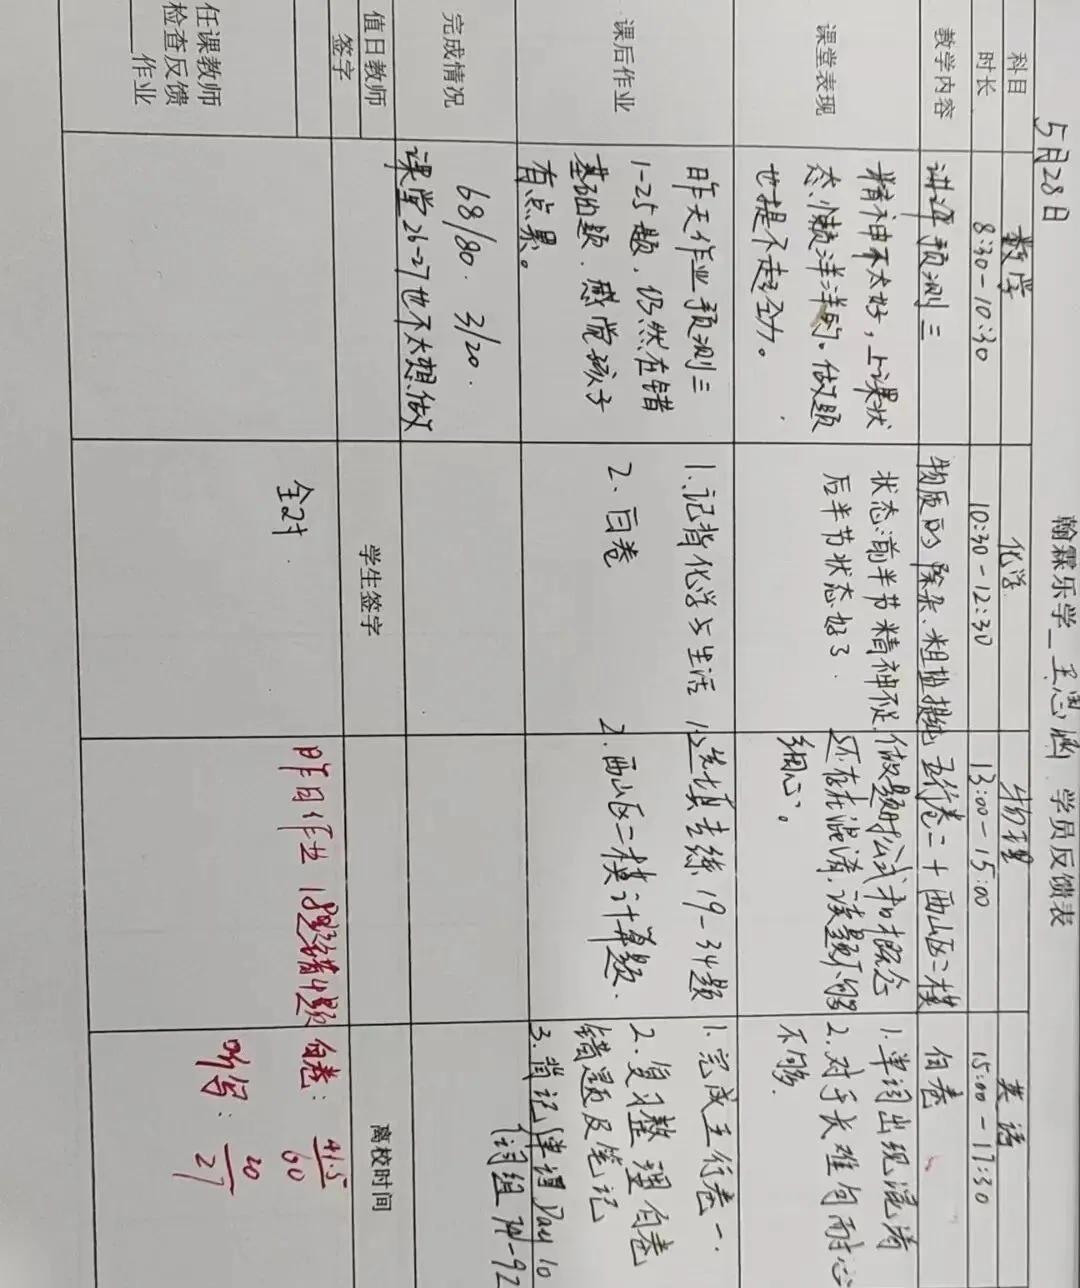 翰霖乐学_王思涵 学员反馈表
5月28日
科目
时长
数学
8:30-10:30
化学
10:30-12:30
物理
13:00-15:00
英语
15:00-17:30
教学内容
讲评预测三
物质的除杂、粗盐提纯
五行卷二+西山区二模
白卷
课堂表现
精神不太好,上课状
态懒洋洋的。做题
也提不起劲。
状态:前半节精神不足
后半节状态好了.
做题时公式和概念
还存在混淆,读题不够
细心。
1.单词出现混淆
2.对于长难句耐心
不够.
课后作业
昨天作业预测三
1-25题,仍然在错
基础题.感觉孩子
有点累。
1.记背化学与生活
2.白卷
1.选填专练19-34题
2.西山区二模计算题.
1.完成五行卷一.
2.复习整理白卷
错题及笔记
3.背记单词Day 10
词组 71-92
完成情况
68/80. 3/20.
课堂26-27也不太想做
值日教师
签字
学生签字
离校时间
任课教师
检查反馈
____作业
全对
昨日作业 18题错4题
白卷: 41.5/60
听写: 20/27